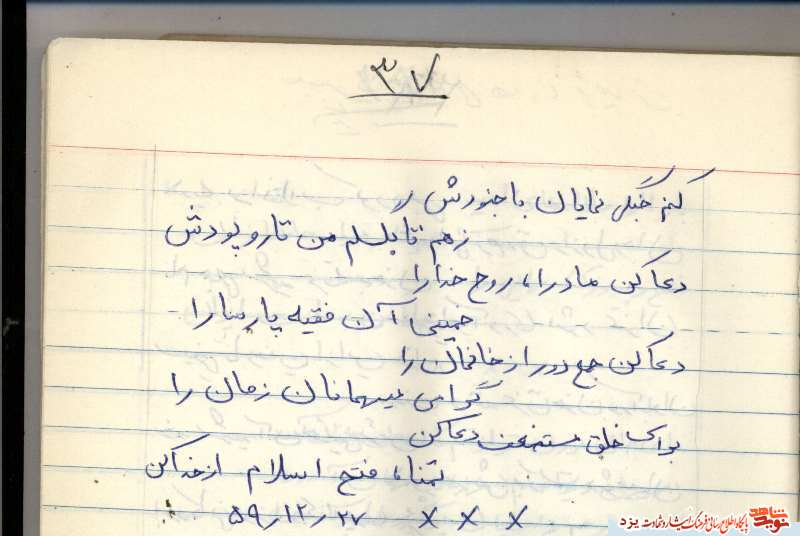 ۳۷
کنم جنگی نمایان با جنودش ر
زهم تا بگسلم من تار و پودش
دعا کن مادرا، روح خدا را
خمینی آن فقیه پارسا را
دعا کن جمع دور از خانمان را
گرامی میهمانان زمان را
برای خلق مستضعف دعا کن
تمناء فتح اسلام از خدا کن
× × × ۵۹٫۱۲٫۲۷
نوید شاهد
پایگاه اطلاع رسانی فرهنگ ایثار و شهادت یزد